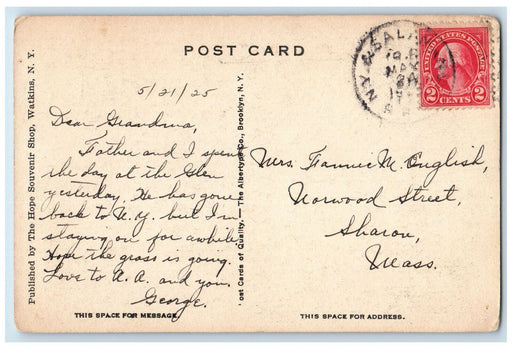 POST CARD
Published by The Hope Souvenir Shop, Watkins, N. Y.
5/21/25
Dear Grandma,
Father and I spent
the day at the Glen
yesterday. He has gone
back to N.Y. but I'm
staying on for awhile.
Hope the grass is going.
Love to A.A. and you.
George.
THIS SPACE FOR MESSAGE.
ost Cards of Quality.—The Albertype Co., Brooklyn, N. Y.
N.Y. & SALA
MAY
UNITED STATES POSTAGE
2 CENTS 2
Mrs. Fannie M. English,
Norwood Street,
Sharon,
Mass.
THIS SPACE FOR ADDRESS.